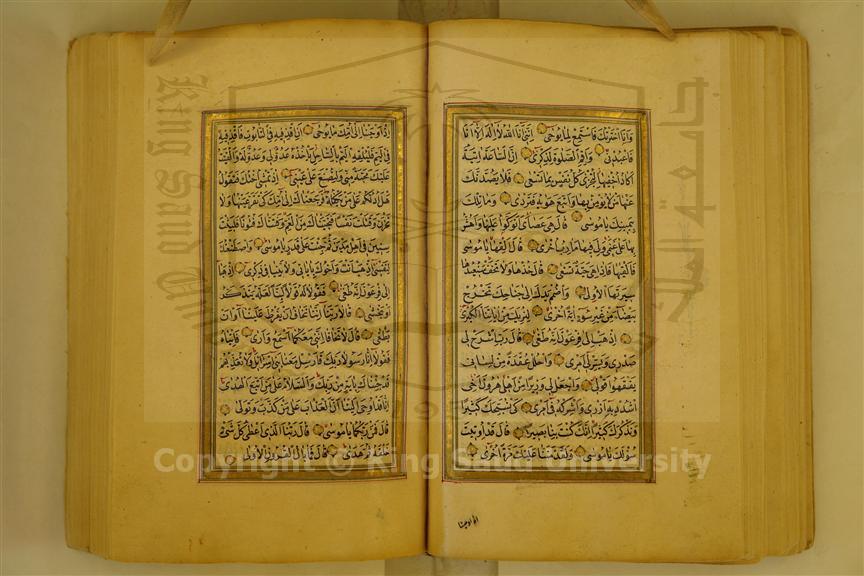 وَاَنَا اخْتَرْتُكَ فَاسْتَمِعْ لِمَا يُوحٰى اِنَّنِي اَنَا اللّٰهُ لَا اِلٰهَ اِلَّا اَنَا
فَاعْبُدْنِي وَاَقِمِ الصَّلٰوةَ لِذِكْرِي اِنَّ السَّاعَةَ اٰتِيَةٌ
اَكَادُ اُخْفِيهَا لِتُجْزٰى كُلُّ نَفْسٍ بِمَا تَسْعٰى فَلَا يَصُدَّنَّكَ
عَنْهَا مَنْ لَا يُؤْمِنُ بِهَا وَاتَّبَعَ هَوٰيهُ فَتَرْدٰى وَمَا تِلْكَ
بِيَمِينِكَ يَا مُوسٰى قَالَ هِيَ عَصَايَ اَتَوَكَّؤُا عَلَيْهَا وَاَهُشُّ
بِهَا عَلٰى غَنَمِي وَلِيَ فِيهَا مَاٰرِبُ اُخْرٰى قَالَ اَلْقِهَا يَا مُوسٰى
فَاَلْقٰيهَا فَاِذَا هِيَ حَيَّةٌ تَسْعٰى قَالَ خُذْهَا وَلَا تَخَفْ سَنُعِيدُهَا
سِيرَتَهَا الْاُولٰى وَاضْمُمْ يَدَكَ اِلٰى جَنَاحِكَ تَخْرُجْ
بَيْضَاءَ مِنْ غَيْرِ سُوءٍ اٰيَةً اُخْرٰى لِنُرِيَكَ مِنْ اٰيَاتِنَا الْكُبْرٰى
اِذْهَبْ اِلٰى فِرْعَوْنَ اِنَّهُ طَغٰى قَالَ رَبِّ اشْرَحْ لِي
صَدْرِي وَيَسِّرْ لِي اَمْرِي وَاحْلُلْ عُقْدَةً مِنْ لِسَانِي
يَفْقَهُوا قَوْلِي وَاجْعَلْ لِي وَزِيرًا مِنْ اَهْلِي هٰرُونَ اَخِي
اشْدُدْ بِهِ اَزْرِي وَاَشْرِكْهُ فِي اَمْرِي كَيْ نُسَبِّحَكَ كَثِيرًا
وَنَذْكُرَكَ كَثِيرًا اِنَّكَ كُنْتَ بِنَا بَصِيرًا قَالَ قَدْ اُوتِيتَ
سُؤْلَكَ يَا مُوسٰى وَلَقَدْ مَنَنَّا عَلَيْكَ مَرَّةً اُخْرٰى
اذ اوحينا
اِذْ اَوْحَيْنَا اِلٰى اُمِّكَ مَا يُوحٰى اَنِ اقْذِفِيهِ فِي التَّابُوتِ فَاقْذِفِيهِ
فِي الْيَمِّ فَلْيُلْقِهِ الْيَمُّ بِالسَّاحِلِ يَأْخُذْهُ عَدُوٌّ لِي وَعَدُوٌّ لَهُ وَاَلْقَيْتُ
عَلَيْكَ مَحَبَّةً مِنِّي وَلِتُصْنَعَ عَلٰى عَيْنِي اِذْ تَمْشِي اُخْتُكَ فَتَقُولُ
هَلْ اَدُلُّكُمْ عَلٰى مَنْ يَكْفُلُهُ فَرَجَعْنَاكَ اِلٰى اُمِّكَ كَيْ تَقَرَّ عَيْنُهَا وَلَا
تَحْزَنَ وَقَتَلْتَ نَفْسًا فَنَجَّيْنَاكَ مِنَ الْغَمِّ وَفَتَنَّاكَ فُتُونًا فَلَبِثْتَ
سِنِينَ فِي اَهْلِ مَدْيَنَ ثُمَّ جِئْتَ عَلٰى قَدَرٍ يَا مُوسٰى وَاصْطَنَعْتُكَ
لِنَفْسِي اِذْهَبْ اَنْتَ وَاَخُوكَ بِاٰيَاتِي وَلَا تَنِيَا فِي ذِكْرِي اِذْهَبَا
اِلٰى فِرْعَوْنَ اِنَّهُ طَغٰى فَقُولَا لَهُ قَوْلًا لَيِّنًا لَعَلَّهُ يَتَذَكَّرُ
اَوْ يَخْشٰى قَالَا رَبَّنَا اِنَّنَا نَخَافُ اَنْ يَفْرُطَ عَلَيْنَا اَوْ اَنْ
يَطْغٰى قَالَ لَا تَخَافَا اِنَّنِي مَعَكُمَا اَسْمَعُ وَاَرٰى فَأْتِيَاهُ
فَقُولَا اِنَّا رَسُولَا رَبِّكَ فَاَرْسِلْ مَعَنَا بَنِي اِسْرَائِيلَ وَلَا تُعَذِّبْهُمْ
قَدْ جِئْنَاكَ بِاٰيَةٍ مِنْ رَبِّكَ وَالسَّلَامُ عَلٰى مَنِ اتَّبَعَ الْهُدٰى
اِنَّا قَدْ اُوحِيَ اِلَيْنَا اَنَّ الْعَذَابَ عَلٰى مَنْ كَذَّبَ وَتَوَلّٰى
قَالَ فَمَنْ رَبُّكُمَا يَا مُوسٰى قَالَ رَبُّنَا الَّذِي اَعْطٰى كُلَّ شَيْءٍ
خَلْقَهُ ثُمَّ هَدٰى قَالَ فَمَا بَالُ الْقُرُونِ الْاُولٰى
King Saud
جامعة الملك
1957
Copyright © King Saud University